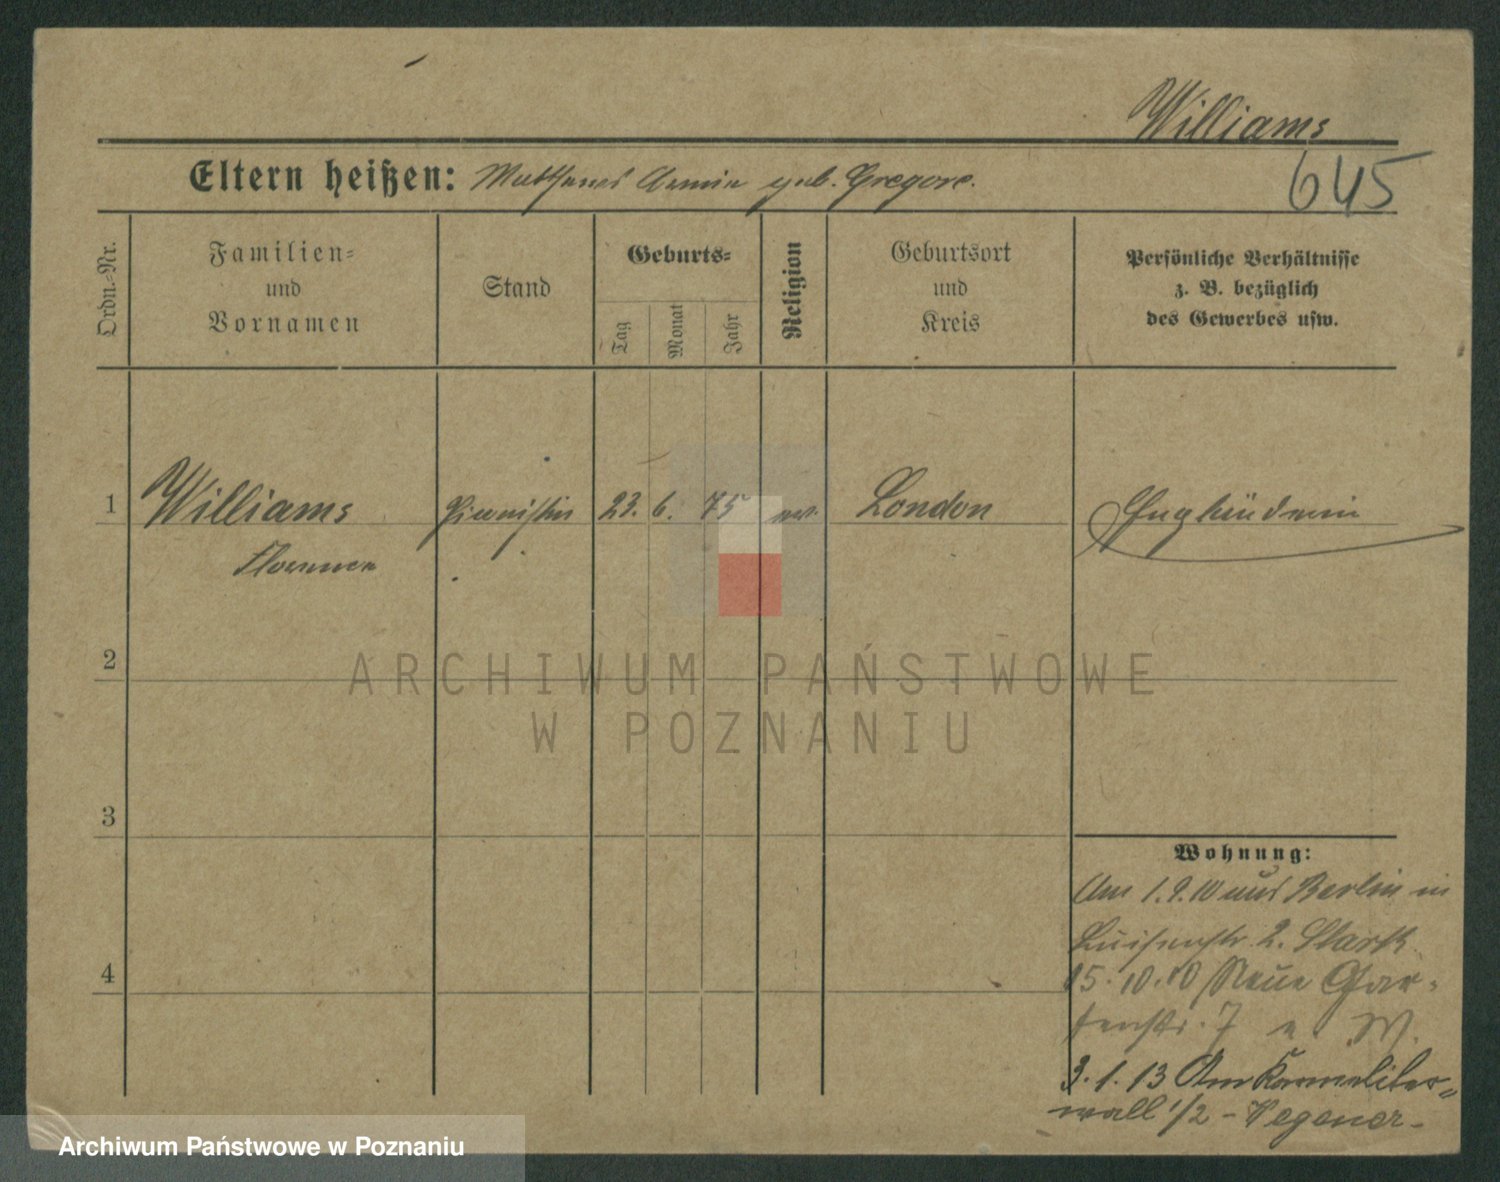 Williams
Eltern heißen: geb. Gregore.
645
Ordn.-Nr.
Familien-
und
Vornamen
Stand
Geburts-
Tag
Monat
Jahr
Religion
Geburtsort
und
Kreis
Persönliche Verhältnisse
z. B. bezüglich
des Gewerbes usw.
1
Williams
Pianistin
23. 6. 75
ev.
London
Engländerin
2
ARCHIWUM PAŃSTWOWE
W POZNANIU
3
Wohnung:
Am 1.9.10 aus Berlin in
Luisenstr. 2. Stark
4
15.10.10 Neue Gar-
tenstr. 7 W.
3.1.13 Am Karmeliter-
wall 1/2 - Wegener -
Archiwum Państwowe w Poznaniu